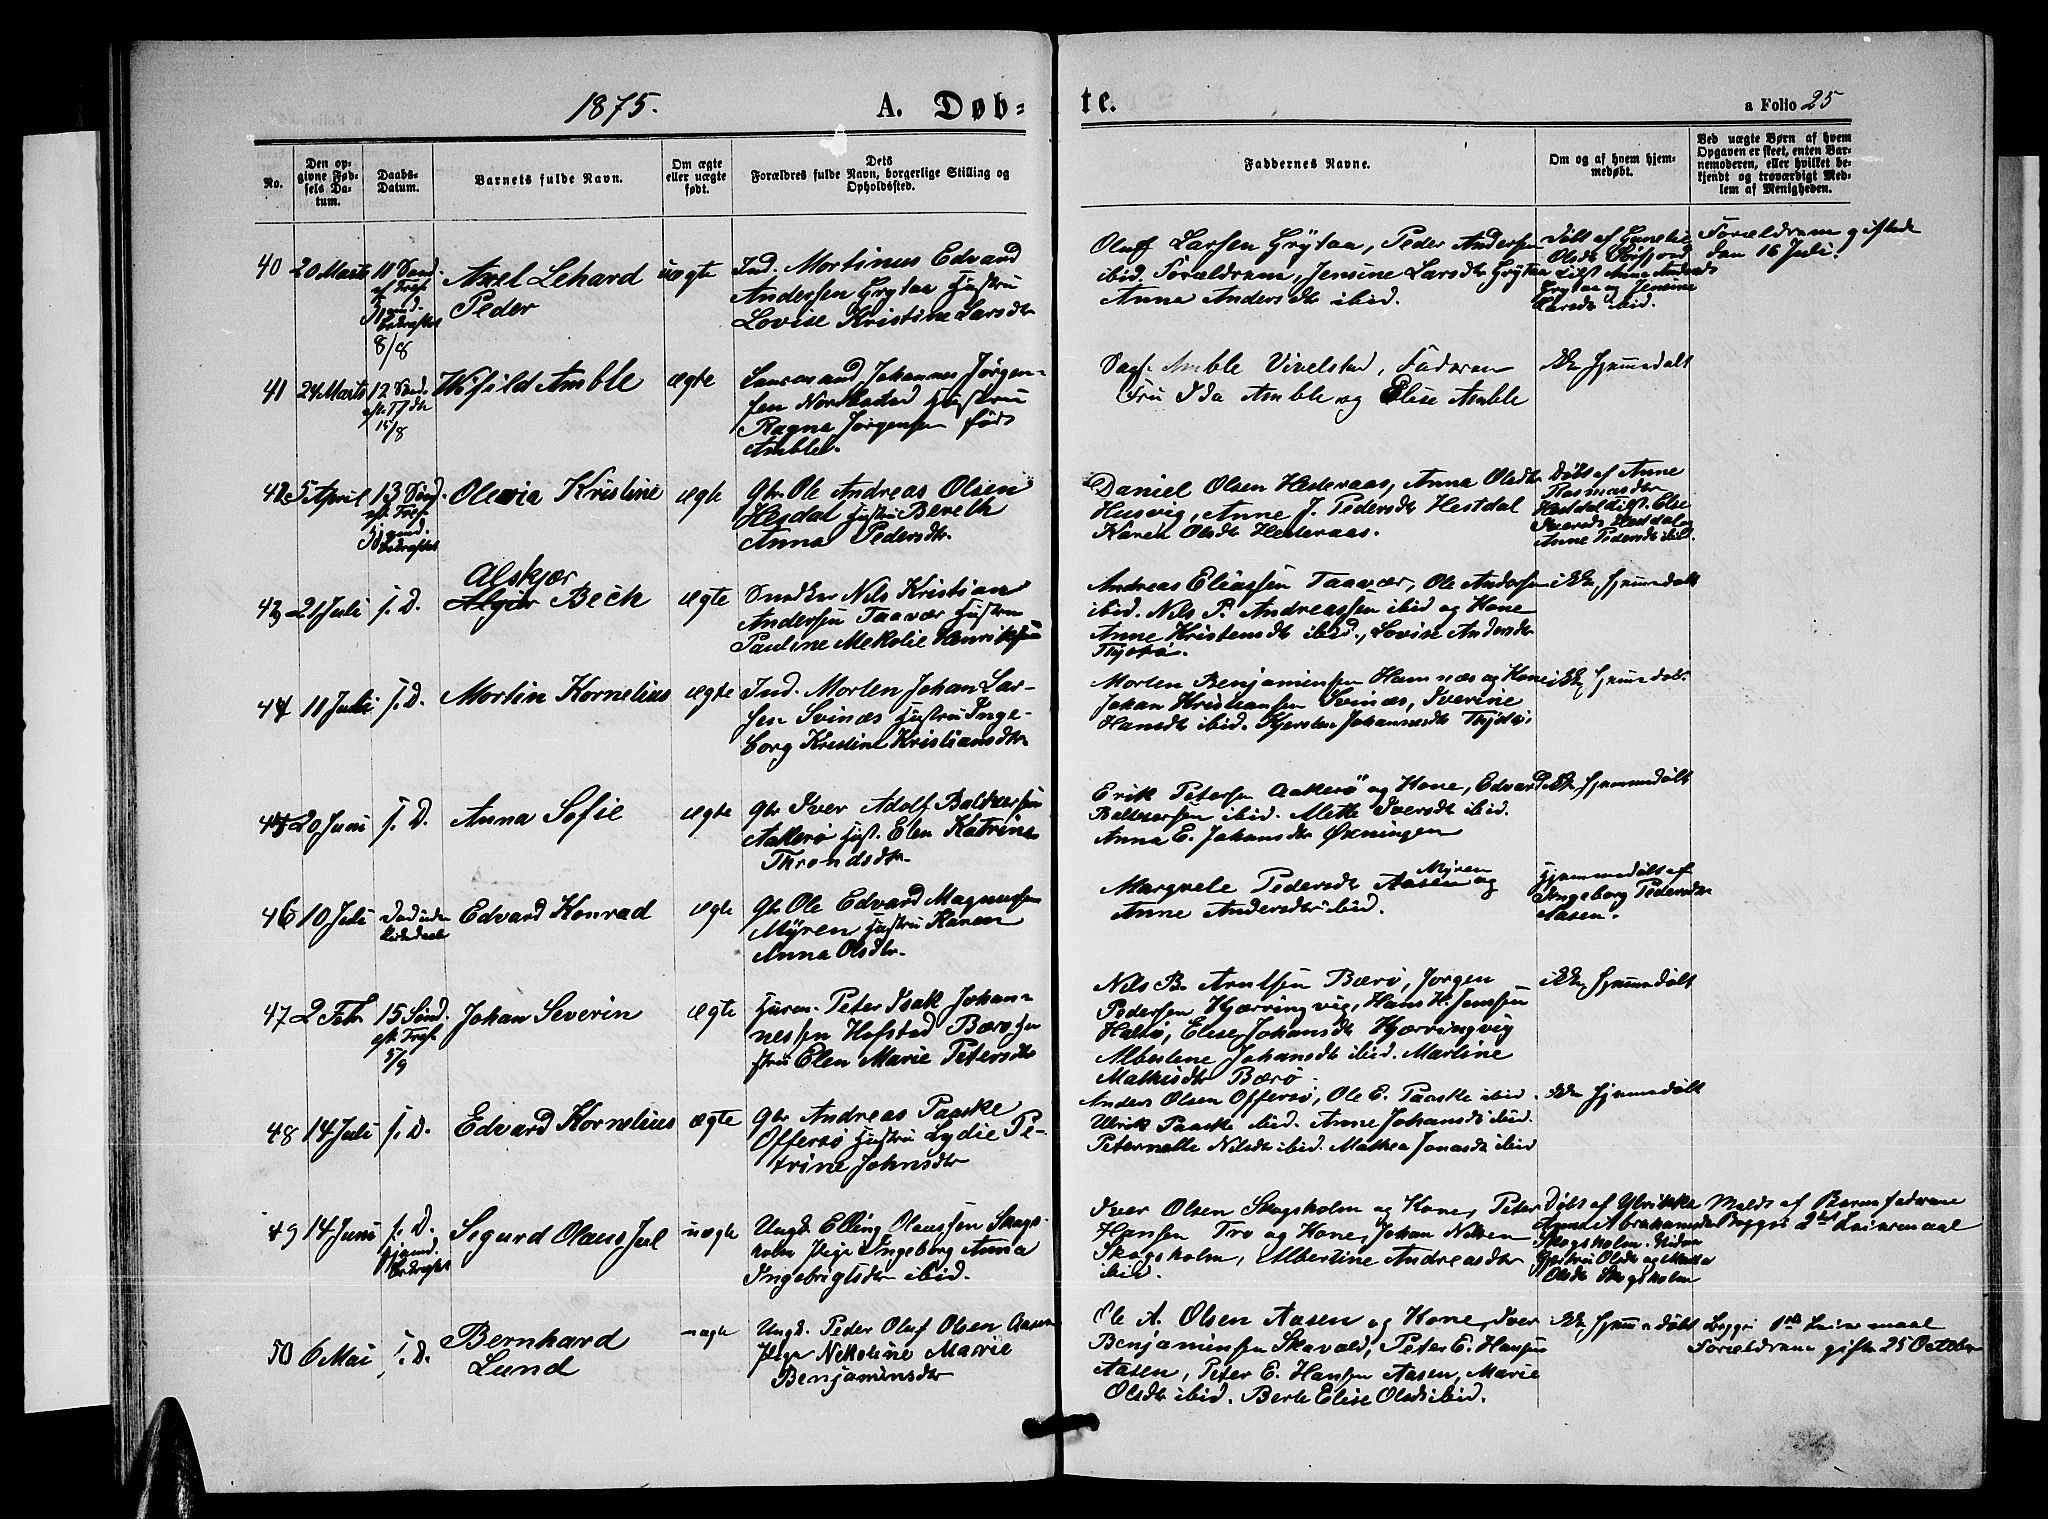 1875.
A. Døb-
te.
a Folio 25
No.
Den op-
givne Fød-
sels Da-
tum.
Daabs-
Datum.
Barnets fulde Navn.
Om ægte
eller uægte
født.
Dets
Forældres fulde Navn, borgerlige Stilling og
Opholdssted.
Faddernes Navne.
Om og af hvem hjem-
medøbt.
Ved uægte Børn af hvem
Opgaven er skeet, enten Bar-
nemoderen, eller hvilket be-
kjendt og troværdigt Med-
lem af Menigheden.
40
20 Marts
11 Sønd.
ef Tref
8/8
Axel Lehard
Peder
uægte
Ind. Martinus Edvard
Andersen Grytaa Hustru
Lovise Kristine Larsdtr
Oluf Larsen Grytaa, Peder Andersen
ibid. Forældrene, Jensine Larsdtr Grytaa
Anna Andersdtr ibid.
Døbt af
Olsdtr Sørfjord
Grytaa og Jensine
Larsdtr ibid.
Forældrene giftede
den 16 Juli.
41
24 Marts
12 Sønd.
15/8
Amble
ægte
Johannes Jørgen-
sen Hustru
Ragna Jørgensen født
Amble.
Amble Vivelstad, Faderen
Fru Ida Amble og Elise Amble
ikke hjemmedøbt
42
5 April
13 Sønd.
eft. Tref
Olevia Kristine
ægte
Gbr. Ole Andreas Olsen
Hesdal Hustru Bereth
Anna Pedersdtr.
Daniel Olsen Hesteraas, Anna Olsdtr
Husvig, Anne J. Pedersdtr Hestdal
Karen Olsdtr Hesteraas.
Døbt af Anne
Rasmusdtr
Anne Pedersdtr ibid.
43
21 Juli
s. D.
Alskjær
Bech
ægte
Nils Kristian
Andersen Taavær Hustru
Pauline Mekolie Henriksen
Andreas Eliassen Taavær, Ole Andersen
ibid. Nils P. Andreassen ibid og Kone
Anne Kristensdtr ibid., Lovise Andersdtr
ikke hjemmedøbt
44
11 Juli
s. D.
Mortin Kornelius
ægte
Ind. Morten Johan Lar-
sen Svinæs Hustru Inge-
borg Kristine Kristiansdtr.
Morten Benjaminsen Hamnæs og Kone
Johan Kristiansen Svinæs, Iverine
Hansdtr ibid. Kjersten Johannesdtr
ikke hjemmedøbt
45
20 Juni
s. D.
Anna Sofie
ægte
Gbr Iver Adolf Baltzersen
Aakerø Hust. Elen Katrine
Throndsdtr.
Erik Petersen Aakerø og Kone, Edvard
Baltzersen ibid. Mette Iversdtr ibid.
Anna E. Johansdtr Øxningen
ikke hjemmedøbt
46
10 Juli
Død uden
Edvard Konrad
ægte
Gbr Ole Edvard Magnussen
Myren Hustru Karen
Anna Olsdtr.
Margrete Pedersdtr Aasen og
Myren
Anne Andersdtr ibid.
Hjemmedøbt af
Ingeborg Pedersdtr
Aasen.
47
2 Febr
15 Sønd.
eft. Tref.
5/9
Johan Severin
ægte
Peter Isak Johan-
nessen Hofstad Bærø Hu
stru Elen Marie Petersdtr
Nils B. Arntsen Bærø, Jørgen
Pedersen Kjærringvig, Hans H. Jenssen
Haltø, Elise Johansdtr Kjærringvig
Albertene Johansdtr ibid. Martine
Mathisdtr Bærø.
ikke hjemmedøbt
48
14 Juli
s. D.
Edvard Kornelius
ægte
Gbr Andreas Paaske
Offersø Hustru Lydie Pe-
trine Johnsdtr
Anders Olsen Offersø, Ole E. Paaske ibid.
Ulrik Paaske ibid. Anne Johansdtr ibid.
Peternelle Nilsdtr ibid. Mathea Jonasdtr ibid
ikke hjemmedøbt
49
14 Juni
s. D.
Sigurd Olaus Jul
uægte
Ungk. Elling Olaussen Skogs-
holm Pige Ingeborg Anna
Ingebrigtsdtr ibid.
Iver Olsen Skogsholm og Kone, Peter
Hansen Tro og Kone, Johan Nilsen
Skogsholm, Albertine Andreasdtr
ibid.
Døbt af Ulrikke
Abrahamsdtr
Skogsholm.
Olsdtr Skogsholm
Meldt af Barnefaderen
Begges 2det Leiermaal
50
6 Mai
s. D.
Bernhard
Lund
uægte
Ungk. Peder Oluf Olsen Aasen
Pige Nikoline Marie
Benjaminsdtr
Ole A. Olsen Aasen og Kone, Iver
Benjaminsen Skavald, Peter E. Hansen
Aasen, Peter E. Hansen Aasen, Marie
Olsdtr ibid. Berte Elise Olsdtr ibid.
ikke hjemmedøbt
Begges 1ste Leiermaal
Forældrene gifte 25 October